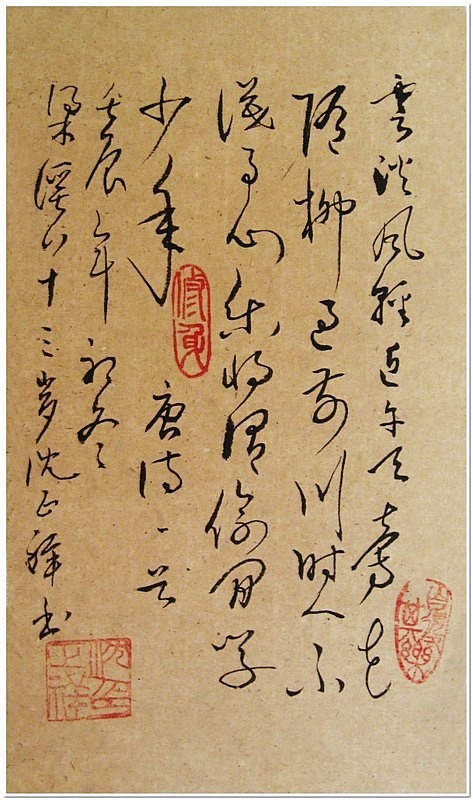 雲淡风輕近午天傍花
随柳過前川时人不
識予心乐将謂偷间学
少年 唐诗一首
壬辰年初冬
梁溪八十三岁沈正书